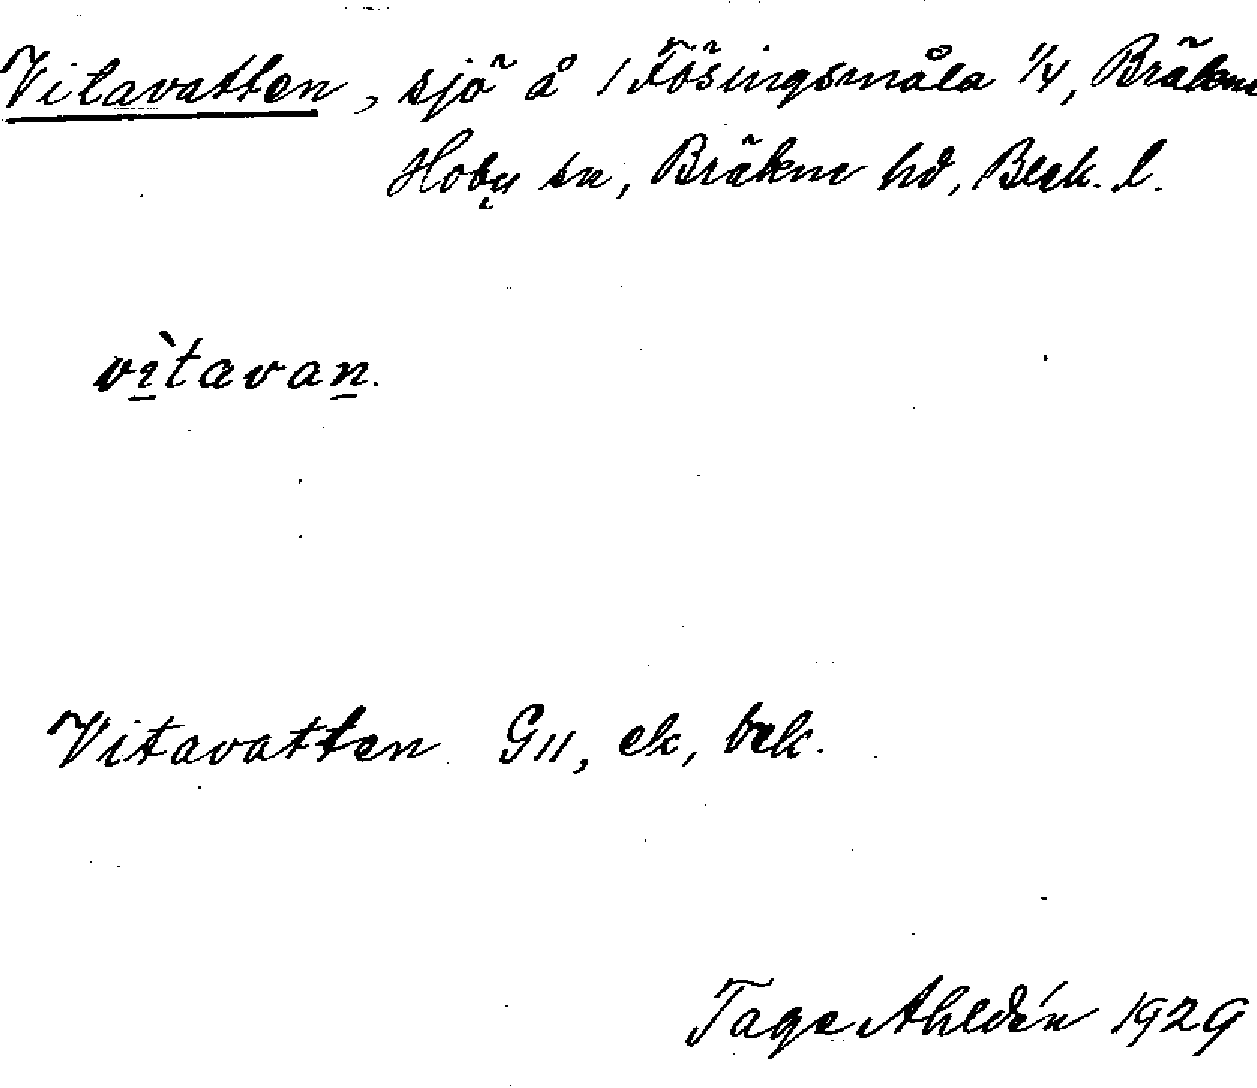 Vitavatten, sjö å 1 Fösingsmåla 1/4, Bräkne
Hoby sn, Bräkne hd, Blek. l.
vìtavan.
Vitavatten GII, ek, bek.
Tage Ahldén 1929